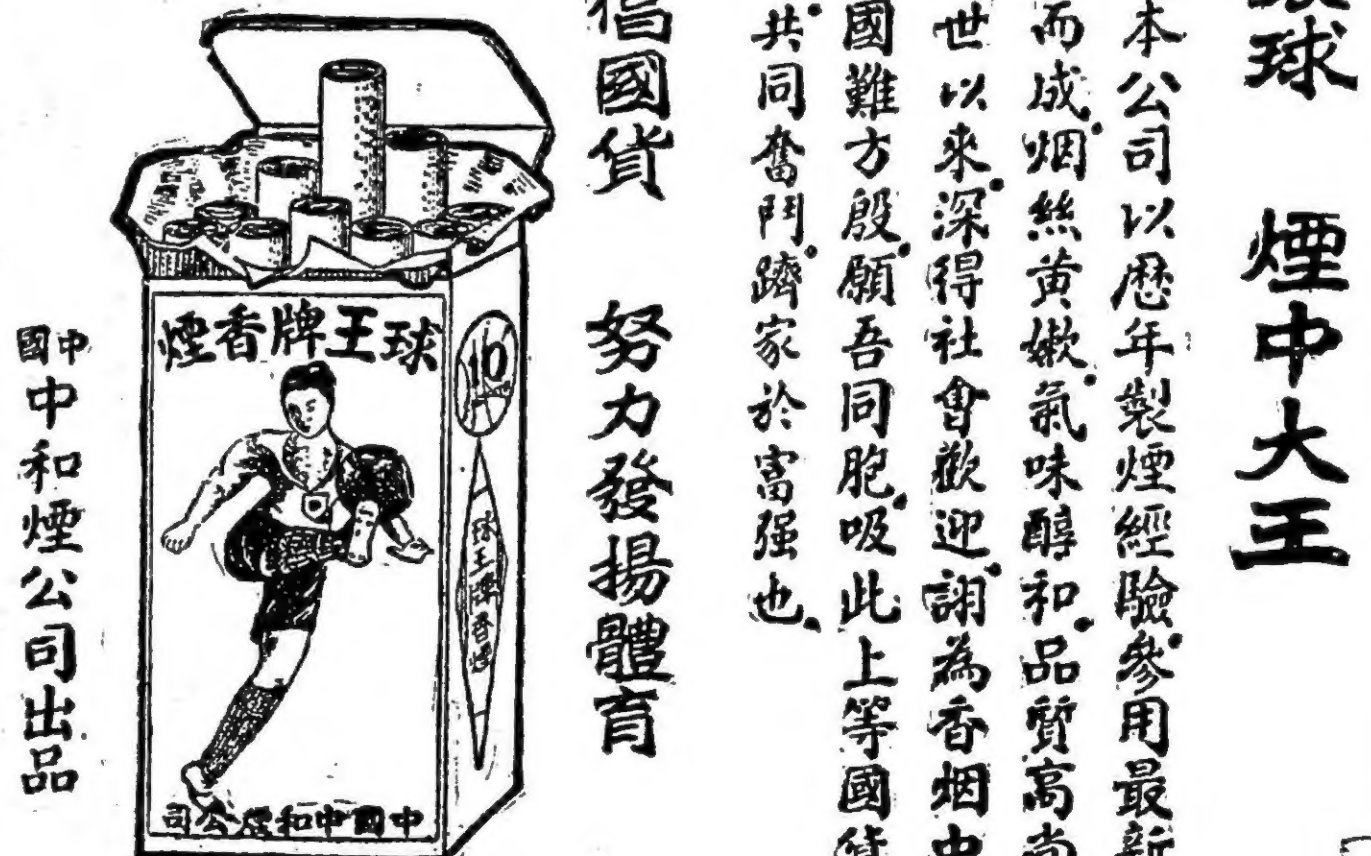 球　煙中大王
本公司以歷年製煙經驗。參用最新
而成。烟絲黄嫩。氣味醇和。品質高尚
世以來。深得社會歡迎。詡為香烟中
國難方殷。願吾同胞。吸此上等國貨
共同奮鬥。躋家於富强也。
倡國貨　努力發揚體育
球王牌香煙
10
球王牌香煙
中國中和煙公司
中國中和煙公司出品